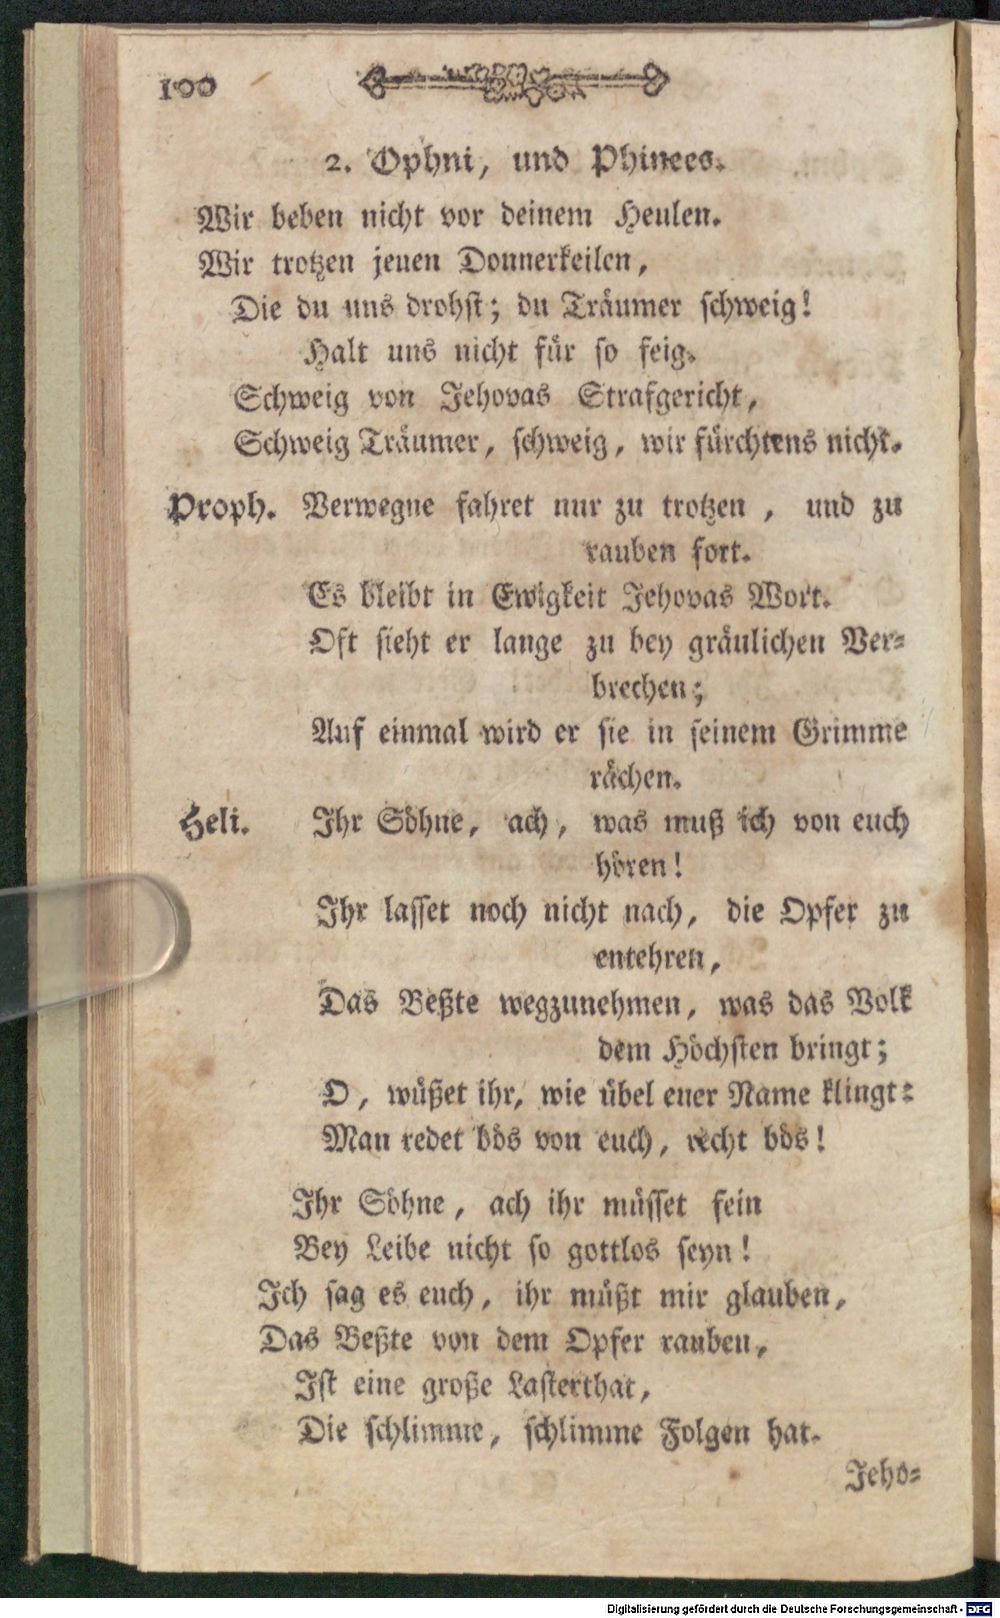 100
2. Ophni, und Phinees.
Wir beben nicht vor deinem Heulen.
Wir trotzen jenen Donnerkeilen,
Die du uns drohst; du Träumer schweig!
Halt uns nicht für so feig.
Schweig von Jehovas Strafgericht,
Schweig Träumer, schweig, wir fürchtens nicht.
Proph. Verwegne fahret nur zu trotzen, und zu
rauben fort.
Es bleibt in Ewigkeit Jehovas Wort.
Oft sieht er lange zu bey gräulichen Ver-
brechen;
Auf einmal wird er sie in seinem Grimme
rächen.
Heli. Ihr Söhne, ach, was muß ich von euch
hören!
Ihr lasset noch nicht nach, die Opfer zu
entehren,
Das Beßte wegzunehmen, was das Volk
dem Höchsten bringt;
O, wüßet ihr, wie übel euer Name klingt:
Man redet bös von euch, recht bös!
Ihr Söhne, ach ihr müsset fein
Bey Leibe nicht so gottlos seyn!
Ich sag es euch, ihr müßt mir glauben,
Das Beßte von dem Opfer rauben,
Ist eine große Lasterthat,
Die schlimme, schlimme Folgen hat.
Jeho-
Digitalisierung gefördert durch die Deutsche Forschungsgemeinschaft - DFG